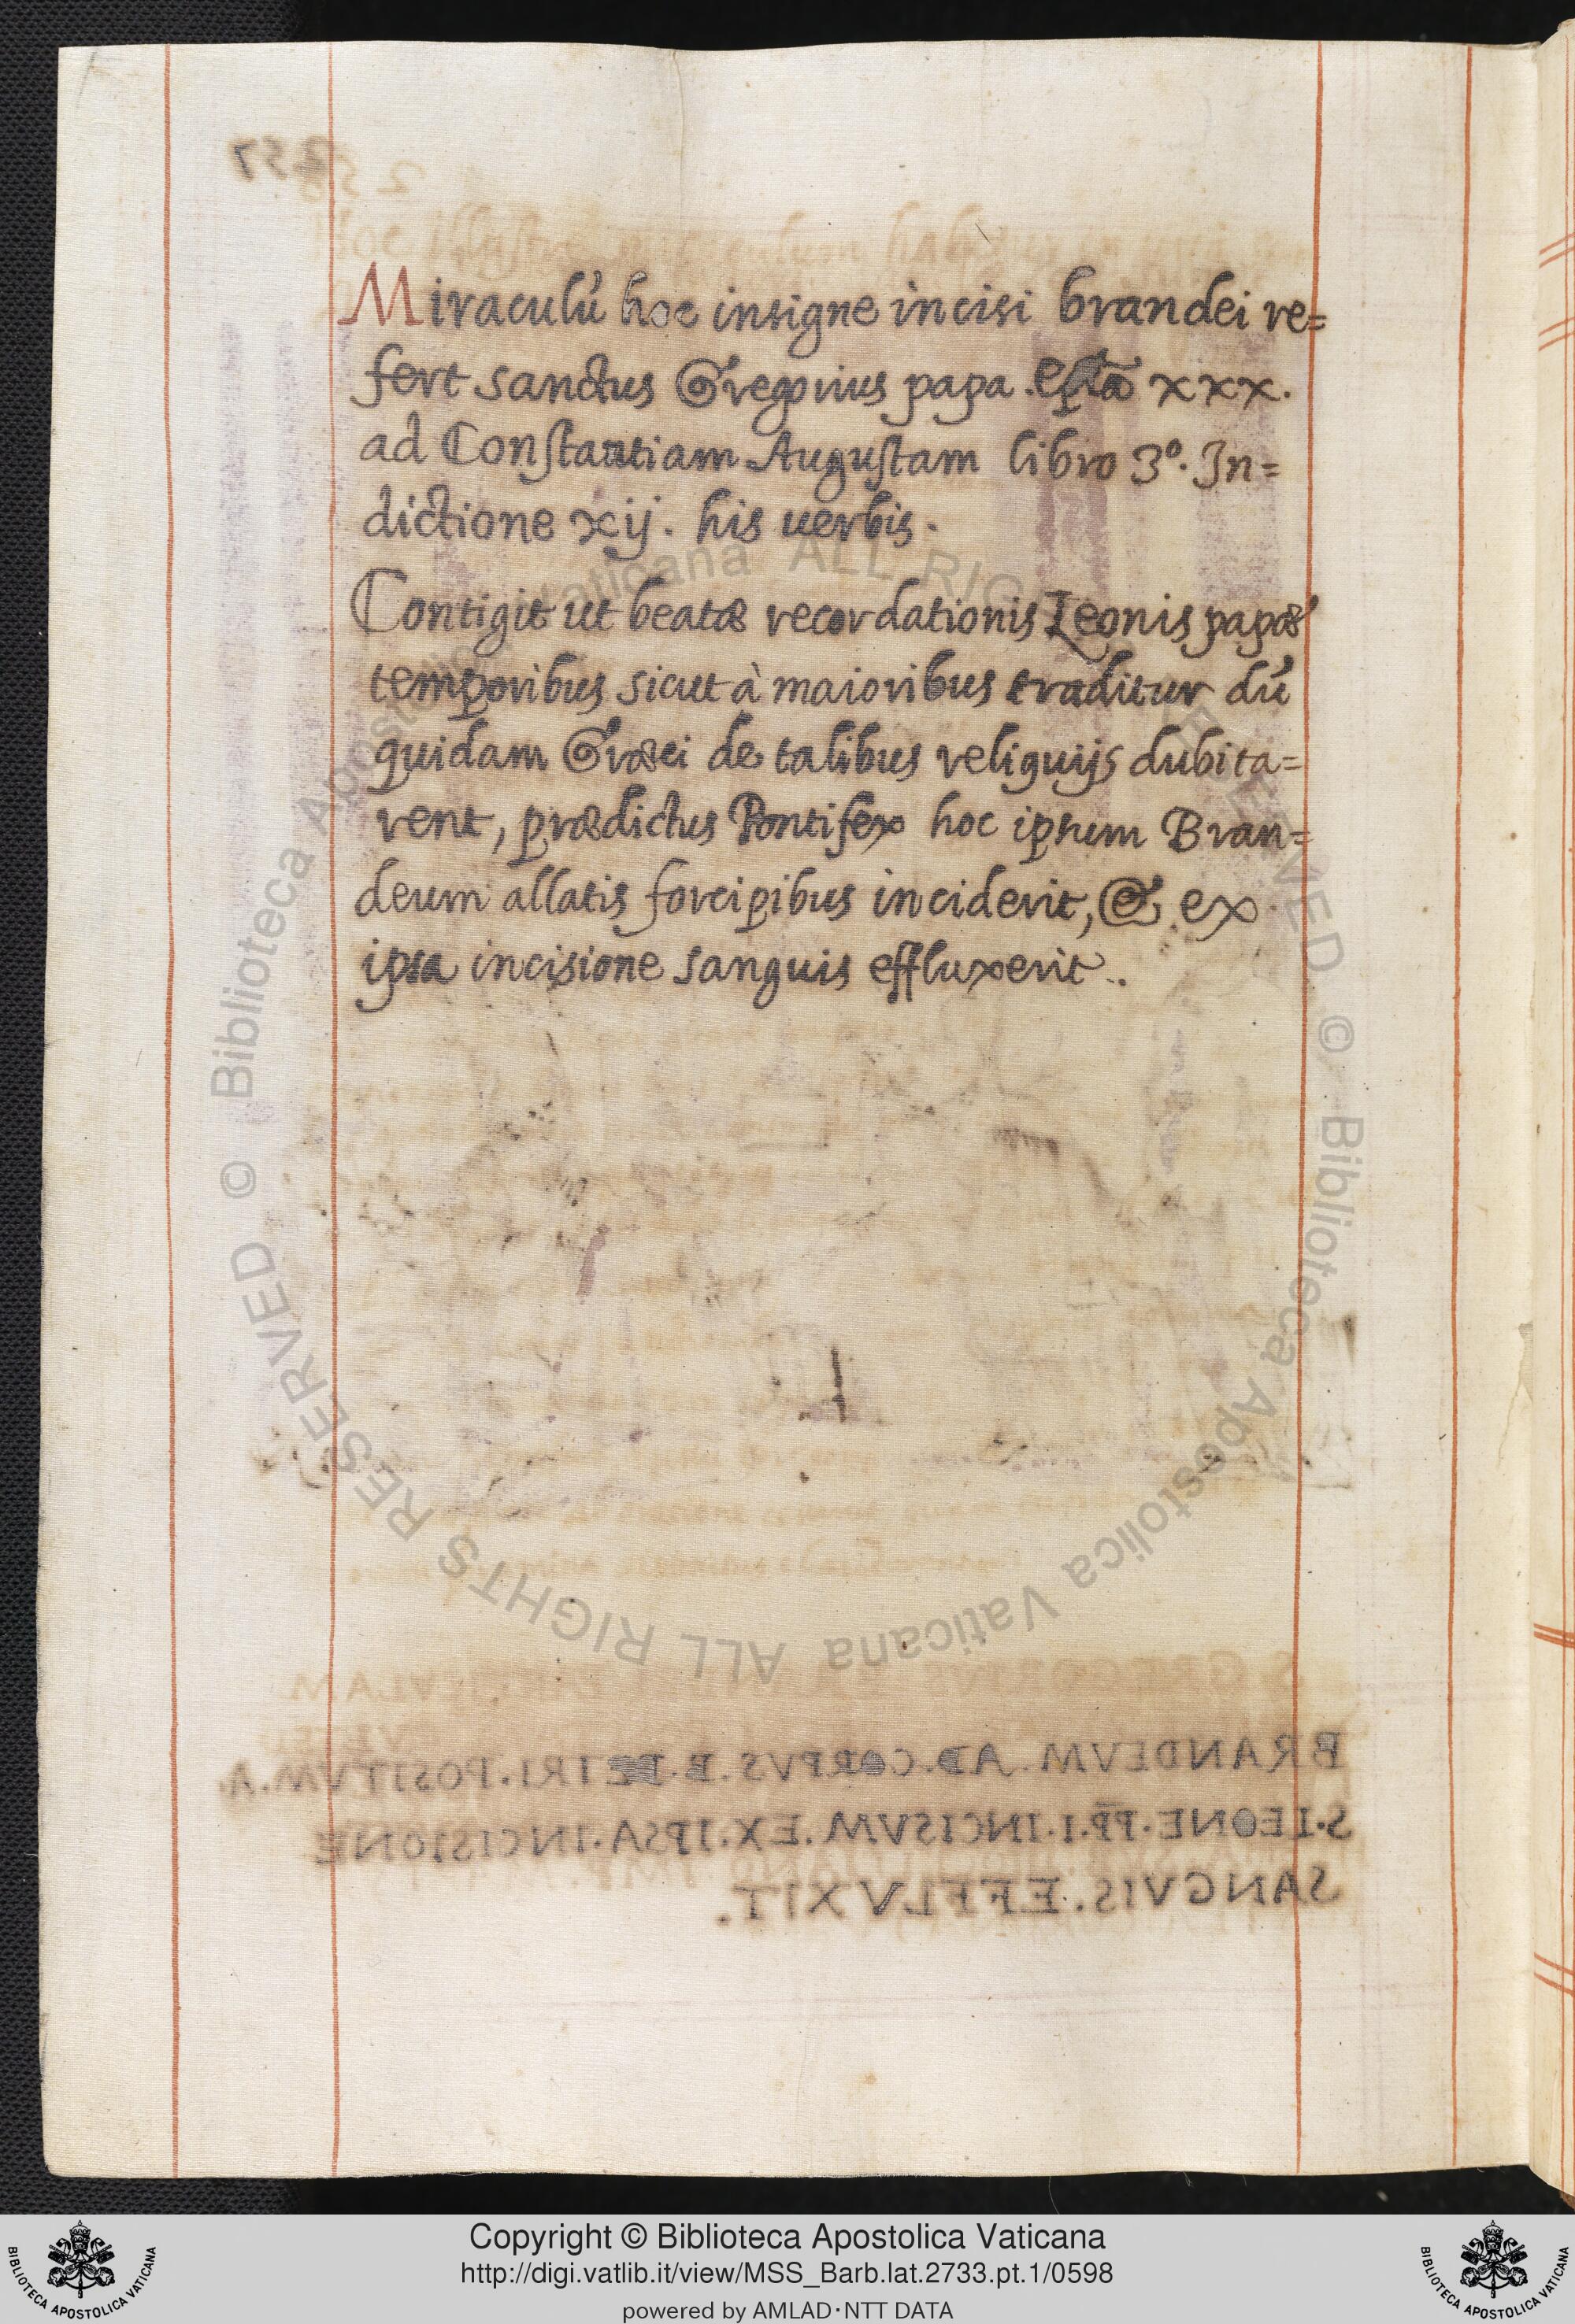 Miraculú hoc insigne incisi brandei re=
fert sanctus Gregorius papa. eplã xxx.
ad Constantiam Augustam libro 3º. In=
dictione xij. his uerbis.
Contigit ut beatæ recordationis Leonis papæ
temporibus sicut à maioribus traditur dú
quidam Græci de talibus reliquijs dubita=
rent, prædictus Pontifex hoc ipsum Bran=
deum allatis forcipibus inciderit, & ex
ipsa incisione sanguis effluxerit.
BRANDEVM. AD. CORPVS. B. PETRI. POSITVM. A.
S. LEONE. PP. I. INCISVM. EX. IPSA. INCISIONE
SANGVIS. EFFLVXIT.
© Biblioteca Apostolica Vaticana ALL RIGHTS RESERVED © Biblioteca Apostolica Vaticana ALL RIGHTS RESERVED
BIBLIOTECA APOSTOLICA VATICANA
Copyright © Biblioteca Apostolica Vaticana
http://digi.vatlib.it/view/MSS_Barb.lat.2733.pt.1/0598
powered by AMLAD·NTT DATA
BIBLIOTECA APOSTOLICA VATICANA